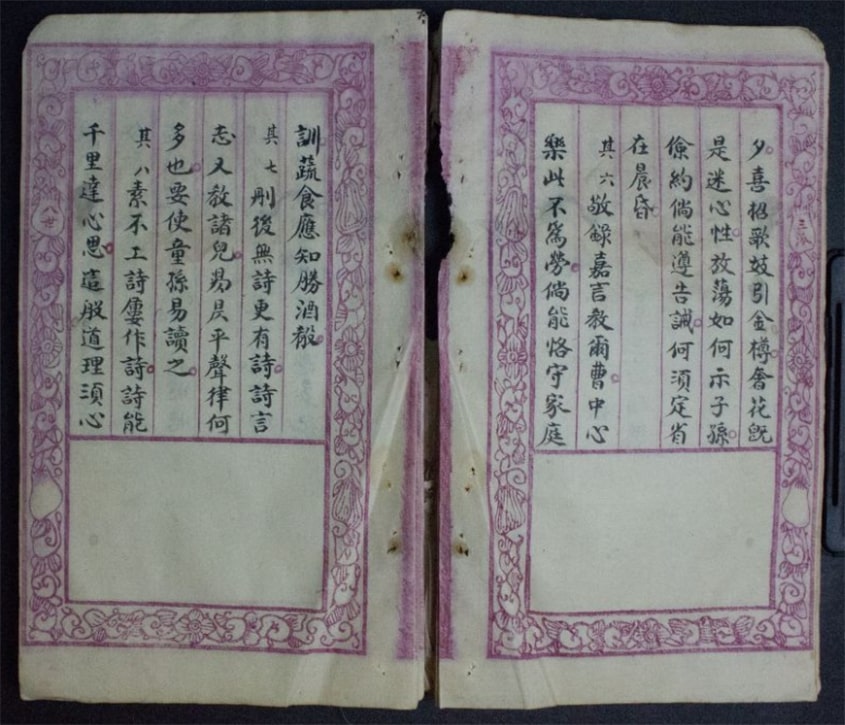 夕喜招歌妓引金樽會花旣
是迷心性放蕩如何示子孫
儉約倘能遵告誡何須定省
在晨昏
其六敬錄嘉言教爾曹中心
樂此不爲勞倘能恪守家庭
訓蔬食應知勝酒殽
其七刪後無詩更有詩詩言
志又教諸兒易昃平聲律何
多也要使童孫易讀之
其八素不工詩屢作詩詩能
千里達心思這般道理須心